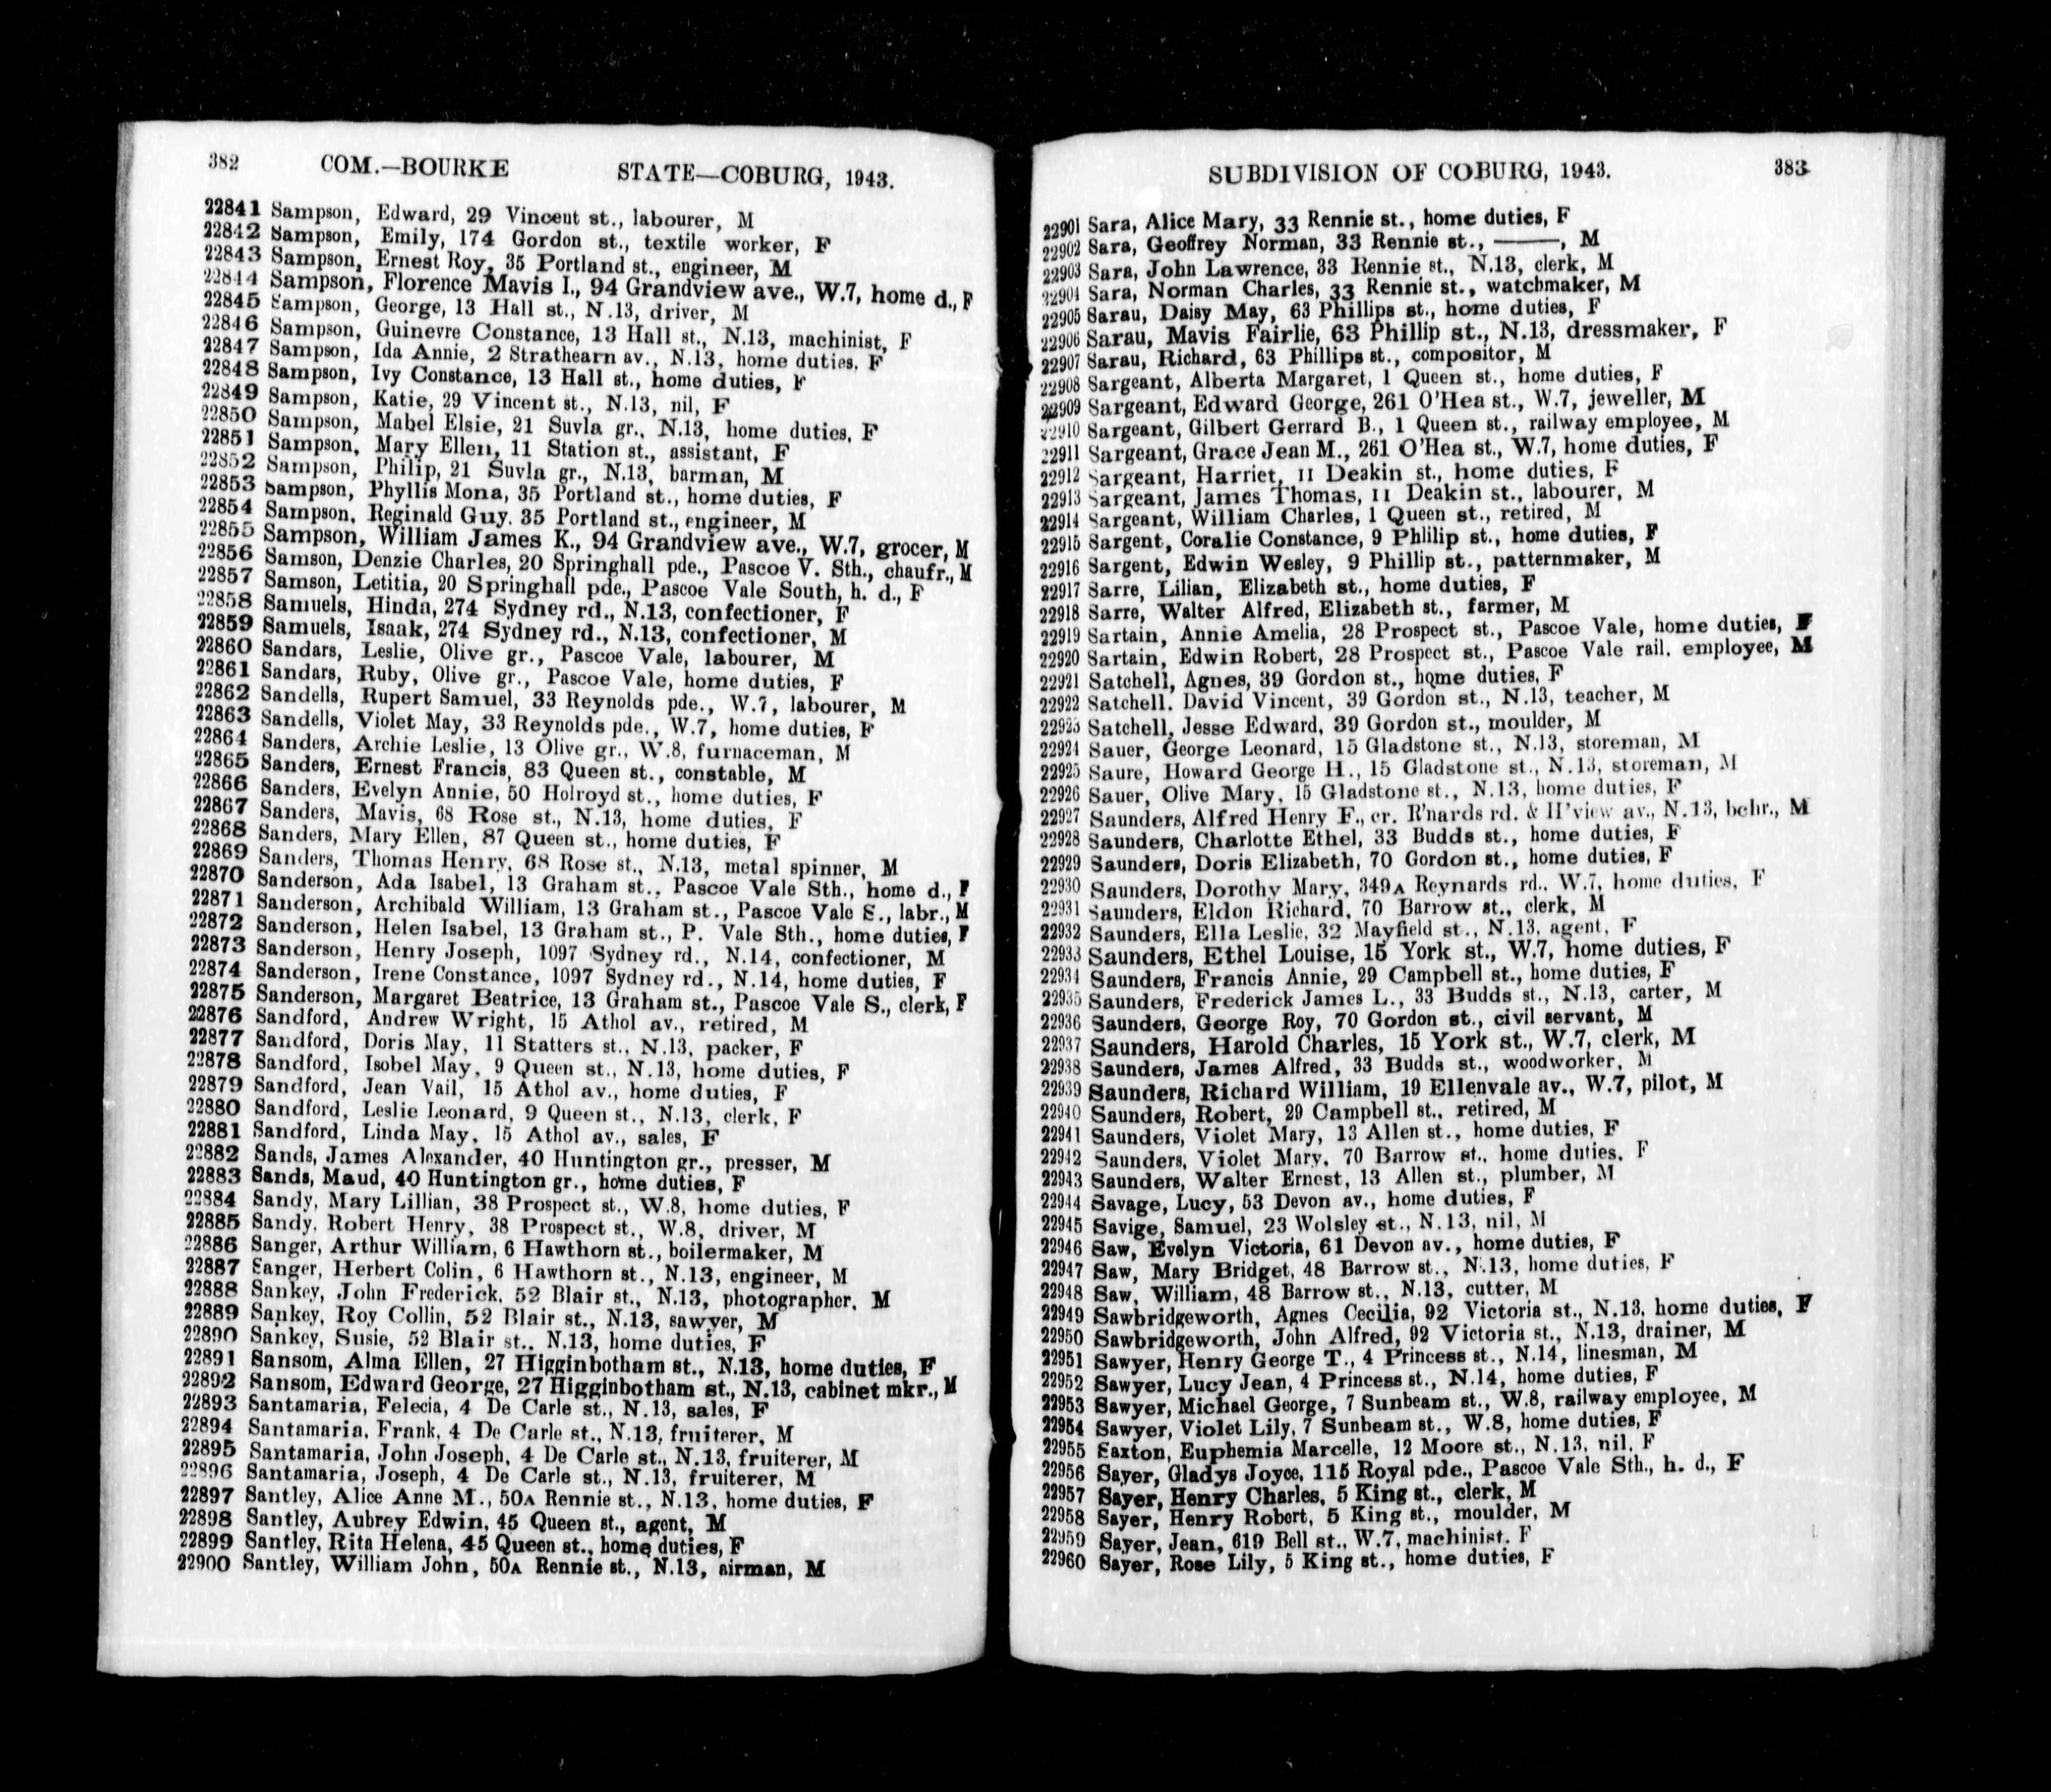 382 COM.—BOURKE STATE—COBURG, 1943.
22841 Sampson, Edward, 29 Vincent st., labourer, M
22842 Sampson, Emily, 174 Gordon st., textile worker, F
22843 Sampson, Ernest Roy, 35 Portland st., engineer, M
22844 Sampson, Florence Mavis I., 94 Grandview ave., W.7, home d., F
22845 Sampson, George, 13 Hall st., N.13, driver, M
22846 Sampson, Guinevre Constance, 13 Hall st., N.13, machinist, F
22847 Sampson, Ida Annie, 2 Strathearn av., N.13, home duties, F
22848 Sampson, Ivy Constance, 13 Hall st., home duties, F
22849 Sampson, Katie, 29 Vincent st., N.13, nil, F
22850 Sampson, Mabel Elsie, 21 Suvla gr., N.13, home duties, F
22851 Sampson, Mary Ellen, 11 Station st., assistant, F
22852 Sampson, Philip, 21 Suvla gr., N.13, barman, M
22853 Sampson, Phyllis Mona, 35 Portland st., home duties, F
22854 Sampson, Reginald Guy, 35 Portland st., engineer, M
22855 Sampson, William James K., 94 Grandview ave., W.7, grocer, M
22856 Samson, Denzie Charles, 20 Springhall pde., Pascoe V. Sth., chaufr., M
22857 Samson, Letitia, 20 Springhall pde., Pascoe Vale South, h. d., F
22858 Samuels, Hinda, 274 Sydney rd., N.13, confectioner, F
22859 Samuels, Isaak, 274 Sydney rd., N.13, confectioner, M
22860 Sandars, Leslie, Olive gr., Pascoe Vale, labourer, M
22861 Sandars, Ruby, Olive gr., Pascoe Vale, home duties, F
22862 Sandells, Rupert Samuel, 33 Reynolds pde., W.7, labourer, M
22863 Sandells, Violet May, 33 Reynolds pde., W.7, home duties, F
22864 Sanders, Archie Leslie, 13 Olive gr., W.8, furnaceman, M
22865 Sanders, Ernest Francis, 83 Queen st., constable, M
22866 Sanders, Evelyn Annie, 50 Holroyd st., home duties, F
22867 Sanders, Mavis, 68 Rose st., N.13, home duties, F
22868 Sanders, Mary Ellen, 87 Queen st., home duties, F
22869 Sanders, Thomas Henry, 68 Rose st., N.13, metal spinner, M
22870 Sanderson, Ada Isabel, 13 Graham st., Pascoe Vale Sth., home d., F
22871 Sanderson, Archibald William, 13 Graham st., Pascoe Vale S., labr., M
22872 Sanderson, Helen Isabel, 13 Graham st., P. Vale Sth., home duties, F
22873 Sanderson, Henry Joseph, 1097 Sydney rd., N.14, confectioner, M
22874 Sanderson, Irene Constance, 1097 Sydney rd., N.14, home duties, F
22875 Sanderson, Margaret Beatrice, 13 Graham st., Pascoe Vale S., clerk, F
22876 Sandford, Andrew Wright, 15 Athol av., retired, M
22877 Sandford, Doris May, 11 Statters st., N.13, packer, F
22878 Sandford, Isobel May, 9 Queen st., N.13, home duties, F
22879 Sandford, Jean Vail, 15 Athol av., home duties, F
22880 Sandford, Leslie Leonard, 9 Queen st., N.13, clerk, F
22881 Sandford, Linda May, 15 Athol av., sales, F
22882 Sands, James Alexander, 40 Huntington gr., presser, M
22883 Sands, Maud, 40 Huntington gr., home duties, F
22884 Sandy, Mary Lillian, 38 Prospect st., W.8, home duties, F
22885 Sandy, Robert Henry, 38 Prospect st., W.8, driver, M
22886 Sanger, Arthur William, 6 Hawthorn st., boilermaker, M
22887 Sanger, Herbert Colin, 6 Hawthorn st., N.13, engineer, M
22888 Sankey, John Frederick, 52 Blair st., N.13, photographer, M
22889 Sankey, Roy Collin, 52 Blair st., N.13, sawyer, M
22890 Sankey, Susie, 52 Blair st., N.13, home duties, F
22891 Sansom, Alma Ellen, 27 Higginbotham st., N.13, home duties, F
22892 Sansom, Edward George, 27 Higginbotham st., N.13, cabinet mkr., M
22893 Santamaria, Felecia, 4 De Carle st., N.13, sales, F
22894 Santamaria, Frank, 4 De Carle st., N.13, fruiterer, M
22895 Santamaria, John Joseph, 4 De Carle st., N.13, fruiterer, M
22896 Santamaria, Joseph, 4 De Carle st., N.13, fruiterer, M
22897 Santley, Alice Anne M., 50A Rennie st., N.13, home duties, F
22898 Santley, Aubrey Edwin, 45 Queen st., agent, M
22899 Santley, Rita Helena, 45 Queen st., home duties, F
22900 Santley, William John, 50A Rennie st., N.13, airman, M
SUBDIVISION OF COBURG, 1943. 383
22901 Sara, Alice Mary, 33 Rennie st., home duties, F
22902 Sara, Geoffrey Norman, 33 Rennie st., ———, M
22903 Sara, John Lawrence, 33 Rennie st., N.13, clerk, M
22904 Sara, Norman Charles, 33 Rennie st., watchmaker, M
22905 Sarau, Daisy May, 63 Phillips st., home duties, F
22906 Sarau, Mavis Fairlie, 63 Phillip st., N.13, dressmaker, F
22907 Sarau, Richard, 63 Phillips st., compositor, M
22908 Sargeant, Alberta Margaret, 1 Queen st., home duties, F
22909 Sargeant, Edward George, 261 O'Hea st., W.7, jeweller, M
22910 Sargeant, Gilbert Gerrard B., 1 Queen st., railway employee, M
22911 Sargeant, Grace Jean M., 261 O'Hea st., W.7, home duties, F
22912 Sargeant, Harriet, 11 Deakin st., home duties, F
22913 Sargeant, James Thomas, 11 Deakin st., labourer, M
22914 Sargeant, William Charles, 1 Queen st., retired, M
22915 Sargent, Coralie Constance, 9 Phlilip st., home duties, F
22916 Sargent, Edwin Wesley, 9 Phillip st., patternmaker, M
22917 Sarre, Lilian, Elizabeth st., home duties, F
22918 Sarre, Walter Alfred, Elizabeth st., farmer, M
22919 Sartain, Annie Amelia, 28 Prospect st., Pascoe Vale, home duties, F
22920 Sartain, Edwin Robert, 28 Prospect st., Pascoe Vale rail. employee, M
22921 Satchell, Agnes, 39 Gordon st., home duties, F
22922 Satchell, David Vincent, 39 Gordon st., N.13, teacher, M
22923 Satchell, Jesse Edward, 39 Gordon st., moulder, M
22924 Sauer, George Leonard, 15 Gladstone st., N.13, storeman, M
22925 Saure, Howard George H., 15 Gladstone st., N.13, storeman, M
22926 Sauer, Olive Mary, 15 Gladstone st., N.13, home duties, F
22927 Saunders, Alfred Henry F., cr. R'nards rd. & H'view av., N.13, bchr., M
22928 Saunders, Charlotte Ethel, 33 Budds st., home duties, F
22929 Saunders, Doris Elizabeth, 70 Gordon st., home duties, F
22930 Saunders, Dorothy Mary, 349A Reynards rd., W.7, home duties, F
22931 Saunders, Eldon Richard, 70 Barrow st., clerk, M
22932 Saunders, Ella Leslie, 32 Mayfield st., N.13, agent, F
22933 Saunders, Ethel Louise, 15 York st., W.7, home duties, F
22934 Saunders, Francis Annie, 29 Campbell st., home duties, F
22935 Saunders, Frederick James L., 33 Budds st., N.13, carter, M
22936 Saunders, George Roy, 70 Gordon st., civil servant, M
22937 Saunders, Harold Charles, 15 York st., W.7, clerk, M
22938 Saunders, James Alfred, 33 Budds st., woodworker, M
22939 Saunders, Richard William, 19 Ellenvale av., W.7, pilot, M
22940 Saunders, Robert, 29 Campbell st., retired, M
22941 Saunders, Violet Mary, 13 Allen st., home duties, F
22942 Saunders, Violet Mary, 70 Barrow st., home duties, F
22943 Saunders, Walter Ernest, 13 Allen st., plumber, M
22944 Savage, Lucy, 53 Devon av., home duties, F
22945 Savige, Samuel, 23 Wolsley st., N.13, nil, M
22946 Saw, Evelyn Victoria, 61 Devon av., home duties, F
22947 Saw, Mary Bridget, 48 Barrow st., N.13, home duties, F
22948 Saw, William, 48 Barrow st., N.13, cutter, M
22949 Sawbridgeworth, Agnes Cecilia, 92 Victoria st., N.13, home duties, F
22950 Sawbridgeworth, John Alfred, 92 Victoria st., N.13, drainer, M
22951 Sawyer, Henry George T., 4 Princess st., N.14, linesman, M
22952 Sawyer, Lucy Jean, 4 Princess st., N.14, home duties, F
22953 Sawyer, Michael George, 7 Sunbeam st., W.8, railway employee, M
22954 Sawyer, Violet Lily, 7 Sunbeam st., W.8, home duties, F
22955 Saxton, Euphemia Marcelle, 12 Moore st., N.13, nil, F
22956 Sayer, Gladys Joyce, 115 Royal pde., Pascoe Vale Sth., h. d., F
22957 Sayer, Henry Charles, 5 King st., clerk, M
22958 Sayer, Henry Robert, 5 King st., moulder, M
22959 Sayer, Jean, 619 Bell st., W.7, machinist, F
22960 Sayer, Rose Lily, 5 King st., home duties, F